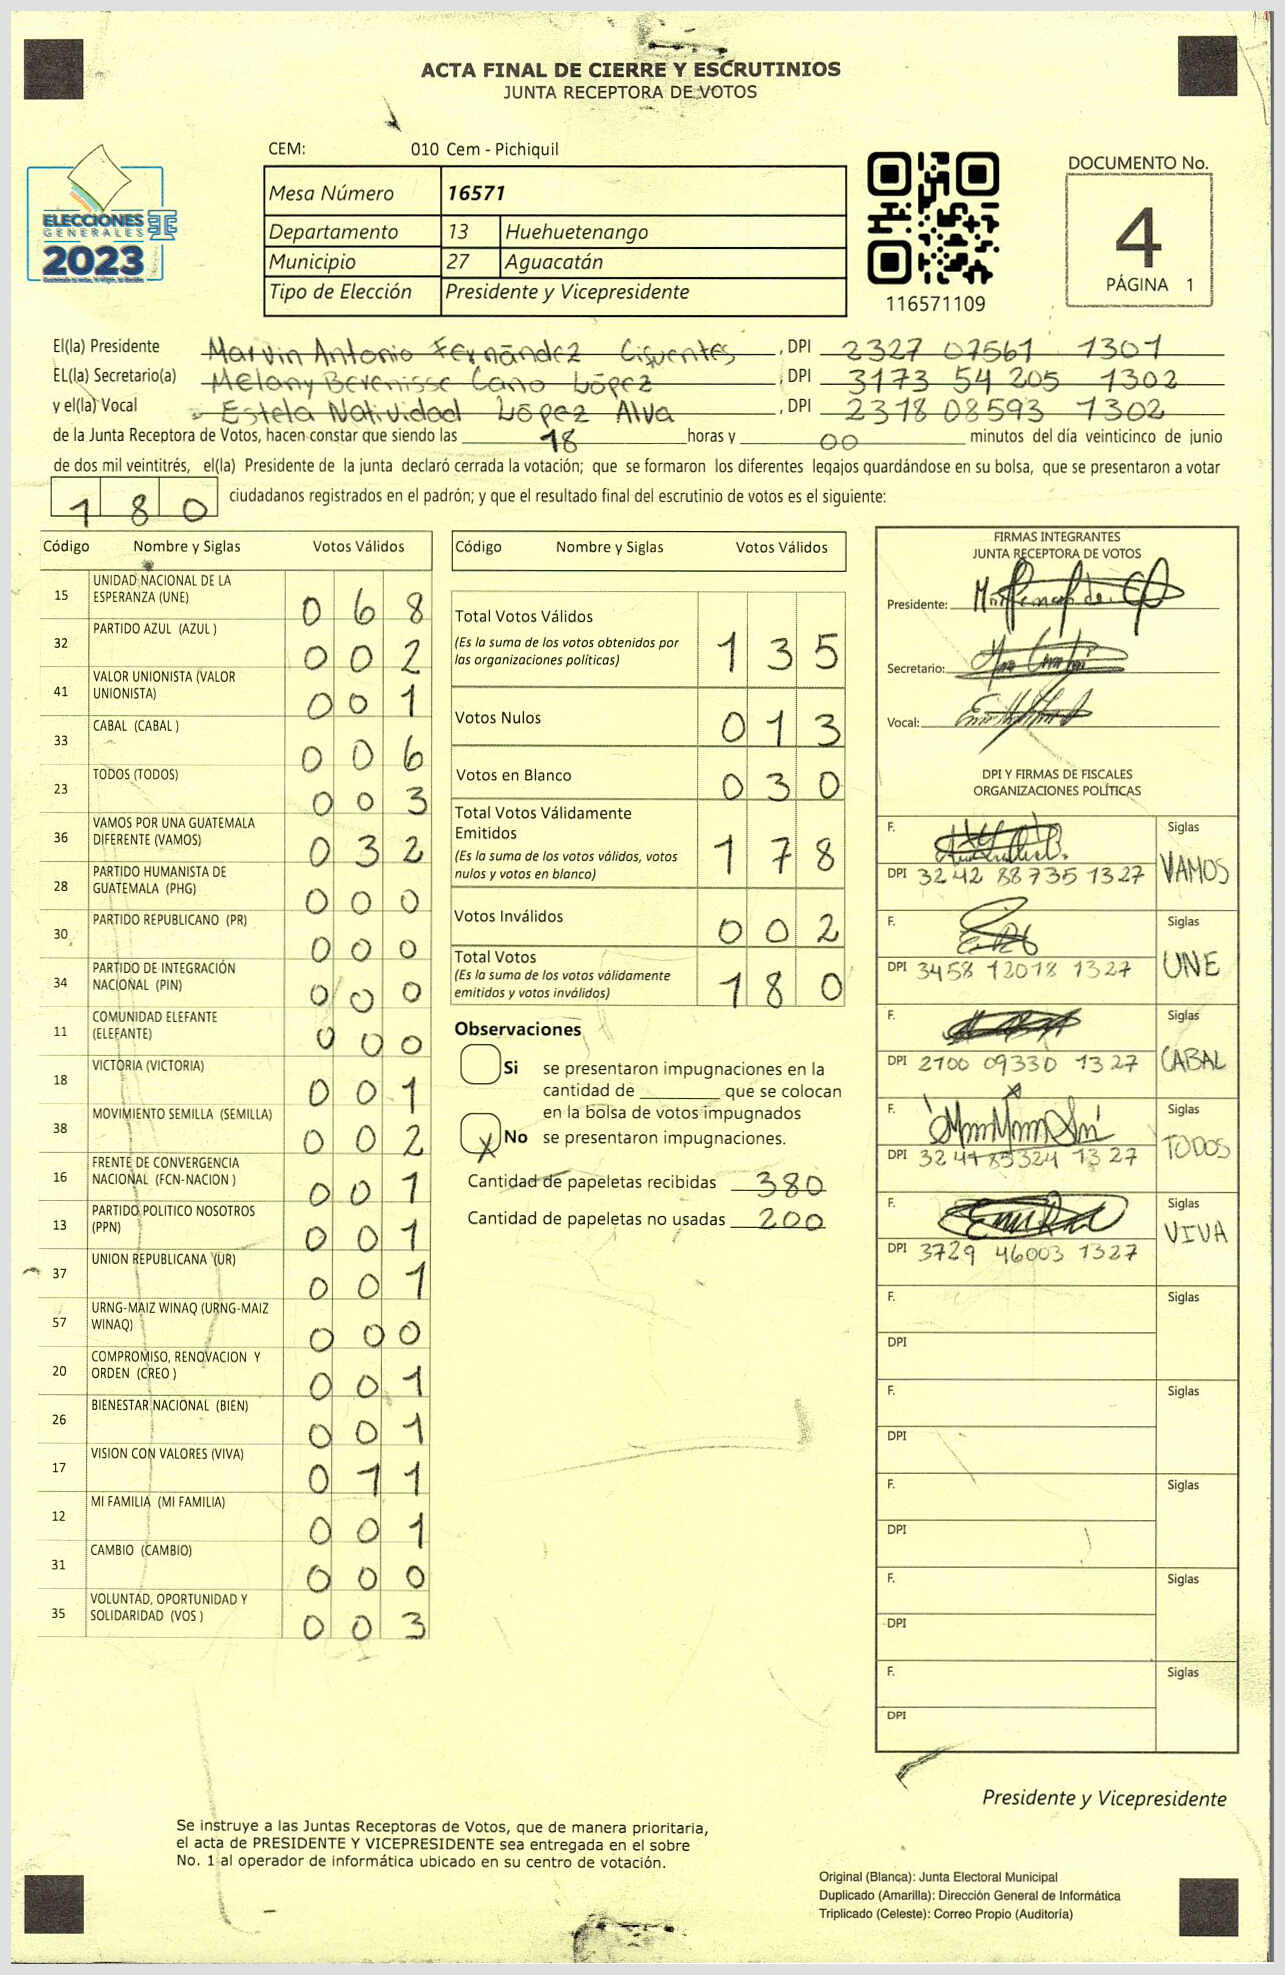 ACTA FINAL DE CIERRE Y ESCRUTINIOS
JUNTA RECEPTORA DE VOTOS
CEM: 010 Cem - Pichiquil
ELECCIONES
GENERALES
2023
Mesa Número 16571
Departamento 13 Huehuetenango
Municipio 27 Aguacatán
Tipo de Elección Presidente y Vicepresidente
116571109
DOCUMENTO No.
4
PÁGINA 1
El(la) Presidente Marvin Antonio Fernández Cifuentes, DPI 2327 07561 1301
EL(la) Secretario(a) Melany Berenisse Cano López, DPI 3173 54 205 1302
y el(la) Vocal Estela Natividad López Alva, DPI 2318 08593 1302
de la Junta Receptora de Votos, hacen constar que siendo las 18 horas y 00 minutos del día veinticinco de junio
de dos mil veintitrés, el(la) Presidente de la junta declaró cerrada la votación; que se formaron los diferentes legajos guardándose en su bolsa, que se presentaron a votar
180 ciudadanos registrados en el padrón; y que el resultado final del escrutinio de votos es el siguiente:
Código Nombre y Siglas Votos Válidos
15 UNIDAD NACIONAL DE LA
ESPERANZA (UNE) 068
32 PARTIDO AZUL (AZUL ) 002
41 VALOR UNIONISTA (VALOR
UNIONISTA) 001
33 CABAL (CABAL ) 006
23 TODOS (TODOS) 003
36 VAMOS POR UNA GUATEMALA
DIFERENTE (VAMOS) 032
28 PARTIDO HUMANISTA DE
GUATEMALA (PHG) 000
30 PARTIDO REPUBLICANO (PR) 000
34 PARTIDO DE INTEGRACIÓN
NACIONAL (PIN) 000
11 COMUNIDAD ELEFANTE
(ELEFANTE) 000
18 VICTORIA (VICTORIA) 001
38 MOVIMIENTO SEMILLA (SEMILLA) 002
16 FRENTE DE CONVERGENCIA
NACIONAL (FCN-NACION ) 001
13 PARTIDO POLITICO NOSOTROS
(PPN) 001
37 UNION REPUBLICANA (UR) 001
57 URNG-MAIZ WINAQ (URNG-MAIZ
WINAQ) 000
20 COMPROMISO, RENOVACION Y
ORDEN (CREO ) 001
26 BIENESTAR NACIONAL (BIEN) 001
17 VISION CON VALORES (VIVA) 011
12 MI FAMILIA (MI FAMILIA) 001
31 CAMBIO (CAMBIO) 000
35 VOLUNTAD, OPORTUNIDAD Y
SOLIDARIDAD (VOS ) 003
Código Nombre y Siglas Votos Válidos
Total Votos Válidos
(Es la suma de los votos obtenidos por
las organizaciones políticas) 135
Votos Nulos 013
Votos en Blanco 030
Total Votos Válidamente
Emitidos
(Es la suma de los votos válidos, votos
nulos y votos en blanco) 178
Votos Inválidos 002
Total Votos
(Es la suma de los votos válidamente
emitidos y votos inválidos) 180
Observaciones
Si se presentaron impugnaciones en la
cantidad de ________ que se colocan
en la bolsa de votos impugnados
X No se presentaron impugnaciones.
Cantidad de papeletas recibidas 380
Cantidad de papeletas no usadas 200
FIRMAS INTEGRANTES
JUNTA RECEPTORA DE VOTOS
Presidente:
Secretario:
Vocal:
DPI Y FIRMAS DE FISCALES
ORGANIZACIONES POLÍTICAS
F. Siglas
DPI 3242 88735 1327 VAMOS
F. Siglas
DPI 3458 12018 1327 UNE
F. Siglas
DPI 2100 09330 1327 CABAL
F. Siglas
DPI 1327 TODOS
F. Siglas
DPI 3729 46003 1327 VIVA
F. Siglas
DPI
F. Siglas
DPI
F. Siglas
DPI
F. Siglas
DPI
F. Siglas
DPI
Presidente y Vicepresidente
Se instruye a las Juntas Receptoras de Votos, que de manera prioritaria,
el acta de PRESIDENTE Y VICEPRESIDENTE sea entregada en el sobre
No. 1 al operador de informática ubicado en su centro de votación.
Original (Blanca): Junta Electoral Municipal
Duplicado (Amarilla): Dirección General de Informática
Triplicado (Celeste): Correo Propio (Auditoría)